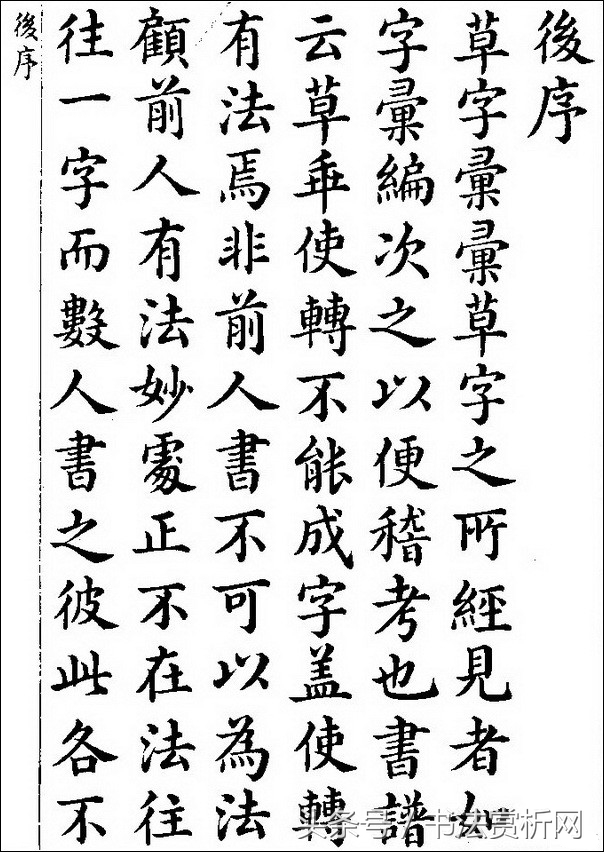 後序
草字彙彙草字之所經見者如
字彙編次之以便稽考也書譜
云草乖使轉不能成字盖使轉
有法焉非前人書不可以為法
顧前人有法妙處正不在法往
往一字而數人書之彼此各不
後序
头条号 / 书法赏析网